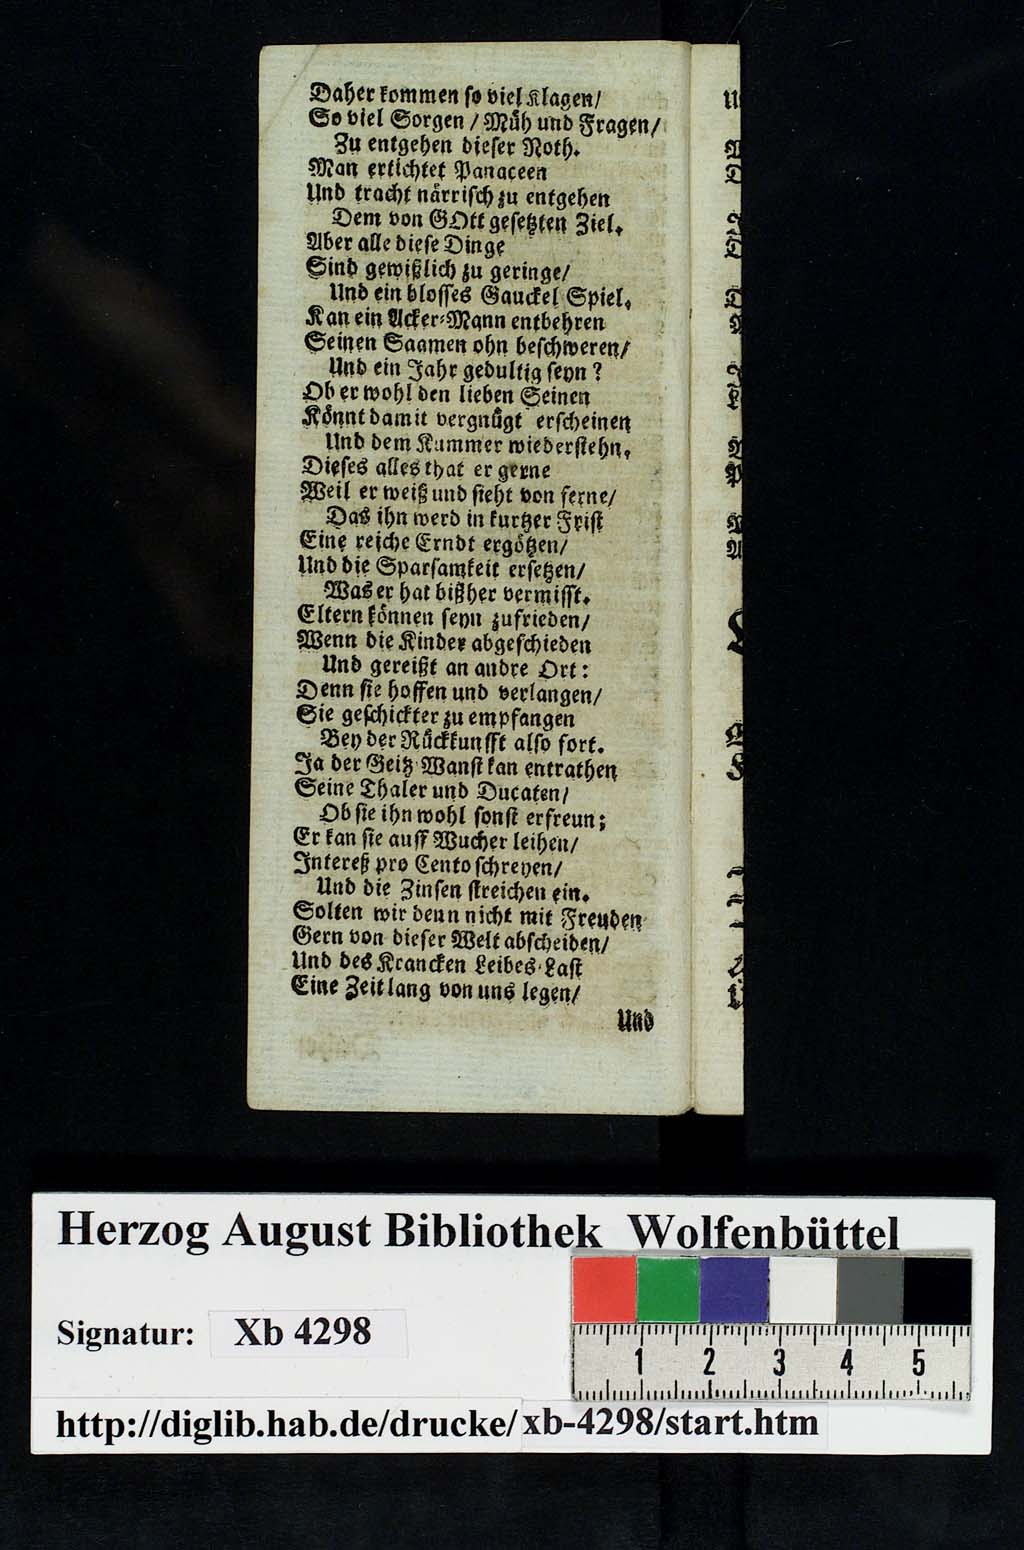 Daher kommen so viel Klagen/
So viel Sorgen / Müh und Fragen/
Zu entgehen dieser Noth.
Man ertichtet Panaceen
Und tracht närrisch zu entgehen
Dem von GOtt gesetzten Ziel.
Aber alle diese Dinge
Sind gewißlich zu geringe/
Und ein blosses Gauckel Spiel.
Kan ein Acker-Mann entbehren
Seinen Saamen ohn beschweren/
Und ein Jahr gedultig seyn?
Ob er wohl den lieben Seinen
Könnt damit vergnügt erscheinen
Und dem Kummer wiederstehn.
Dieses alles that er gerne
Weil er weiß und sieht von ferne/
Das ihn werd in kurtzer Frist
Eine reiche Erndt ergötzen/
Und die Sparsamkeit ersetzen/
Was er hat bißher vermisst.
Eltern können seyn zufrieden/
Wenn die Kinder abgeschieden
Und gereißt an andre Ort:
Denn sie hoffen und verlangen/
Sie geschickter zu empfangen
Bey der Rückkunfft also fort.
Ja der Geitz-Wanst kan entrathen
Seine Thaler und Ducaten/
Ob sie ihn wohl sonst erfreun;
Er kan sie auff Wucher leihen/
Intereß pro Cento schreyen/
Und die Zinsen streichen ein.
Solten wir denn nicht mit Freuden
Gern von dieser Welt abscheiden/
Und des Krancken Leibes-Last
Eine Zeit lang von uns legen/
Und
Herzog August Bibliothek Wolfenbüttel
Signatur: Xb 4298
1 2 3 4 5
http://diglib.hab.de/drucke/xb-4298/start.htm